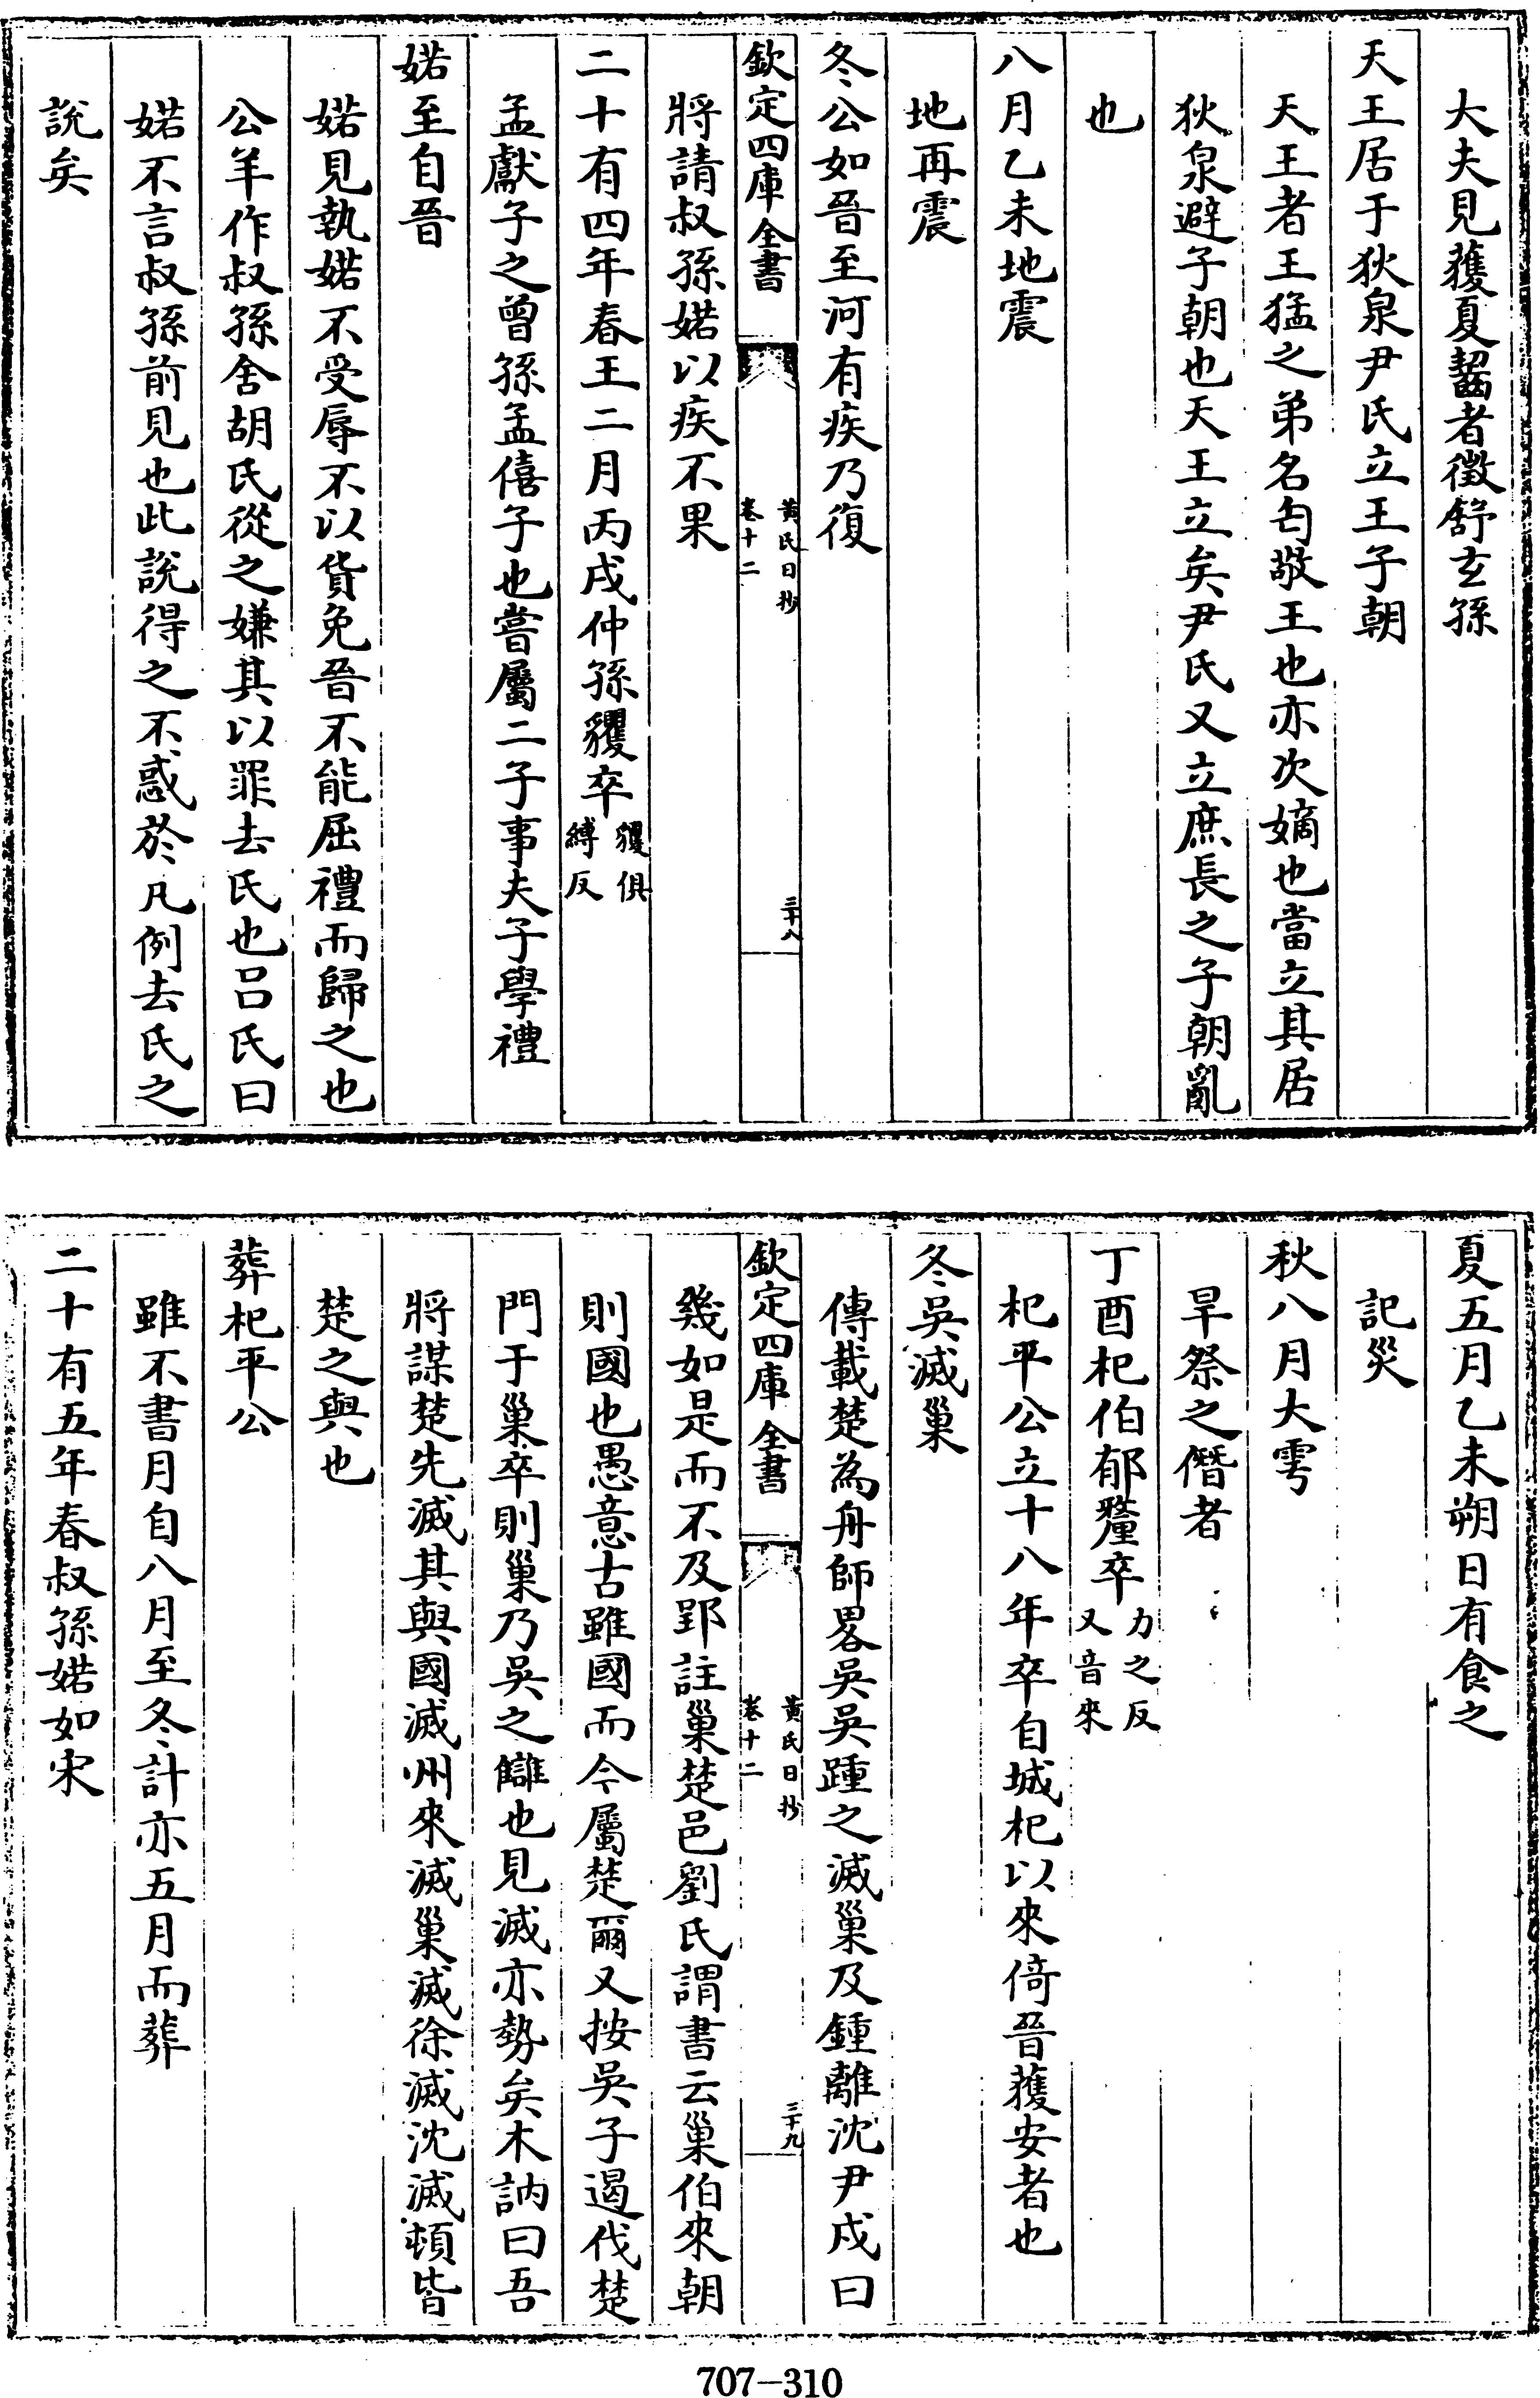 大夫見獲夏齧者徵舒玄孫
天王居于狄泉尹氏立王子朝
天王者王猛之弟名匄敬王也亦次嫡也當立其居
狄泉避子朝也天王立矣尹氏又立庶長之子朝亂
也
八月乙未地震
地再震
冬公如晉至河有疾乃復
欽定四庫全書
黃氏日抄
卷十二
三十八
將請叔孫婼以疾不果
二十有四年春王二月丙戌仲孫貜卒貜俱縛反
孟獻子之曾孫孟僖子也嘗屬二子事夫子學禮
婼至自晉
婼見執婼不受辱不以貨免晉不能屈禮而歸之也
公羊作叔孫舍胡氏從之嫌其以罪去氏也呂氏曰
婼不言叔孫前見也此說得之不惑於凡例去氏之
說矣
夏五月乙未朔日有食之
記災
秋八月大雩
旱祭之僭者
丁酉杞伯郁釐卒力之反又音來
杞平公立十八年卒自城杞以來倚晉獲安者也
冬吳滅巢
傳載楚為舟師畧吳吳踵之滅巢及鍾離沈尹戍曰
欽定四庫全書
黃氏日抄
卷十二
三十九
幾如是而不及郢註巢楚邑劉氏謂書云巢伯來朝
則國也愚意古雖國而今屬楚爾又按吳子遏伐楚
門于巢卒則巢乃吳之讎也見滅亦勢矣木訥曰吾
將謀楚先滅其與國滅州來滅巢滅徐滅沈滅頓皆
楚之與也
葬杞平公
雖不書月自八月至冬計亦五月而葬
二十有五年春叔孫婼如宋
707-310